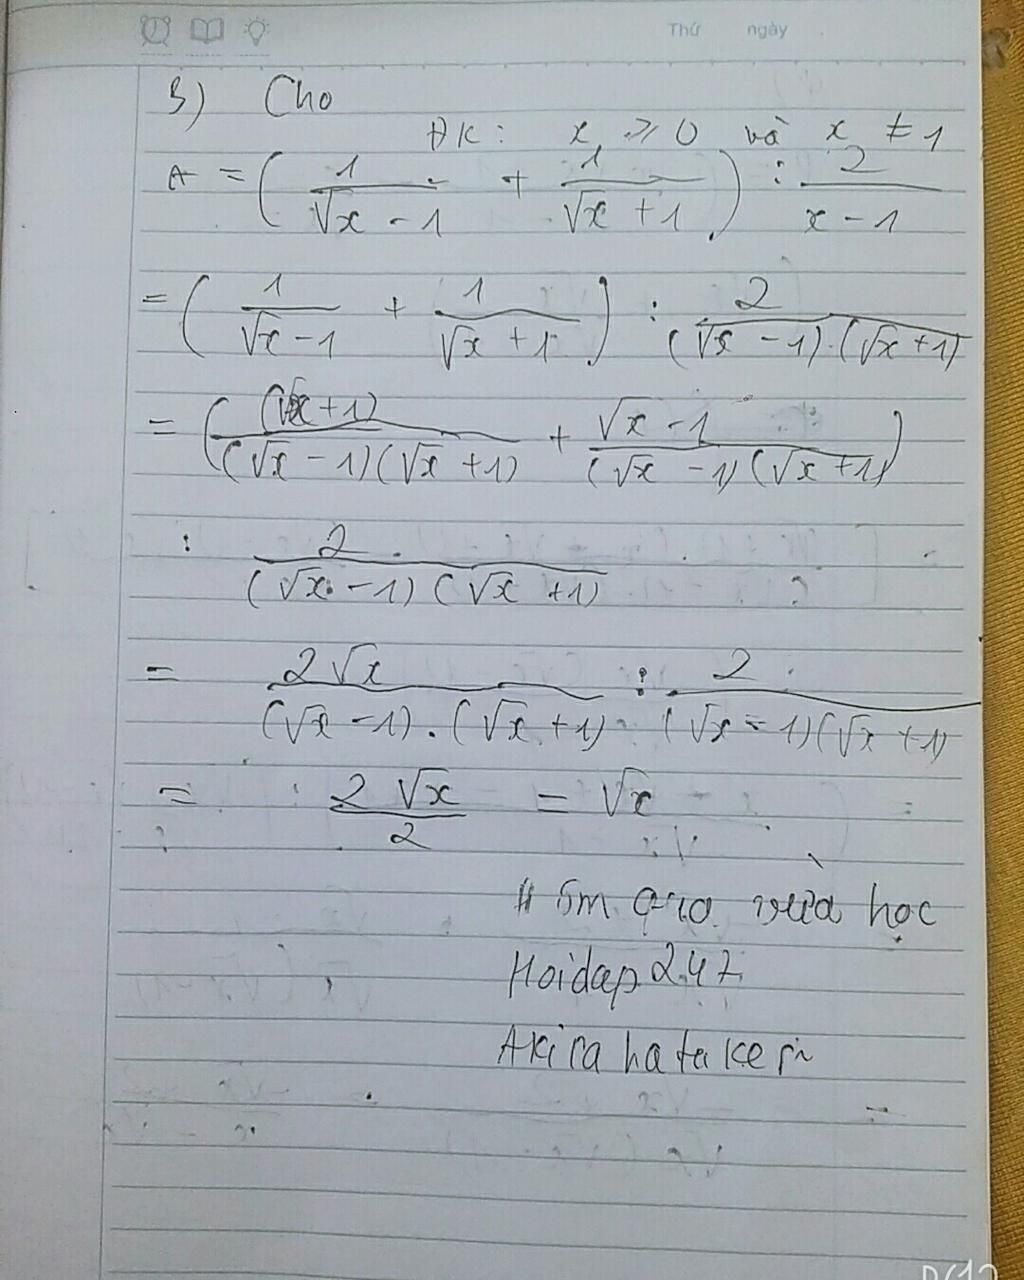 Thứ ngày
3) Cho
ĐK: x ≥ 0 và x ≠ 1
A = ( 1/(√x - 1) + 1/(√x + 1) ) : 2/(x - 1)
= ( 1/(√x - 1) + 1/(√x + 1) ) : 2/((√x - 1).(√x + 1))
= ( (√x + 1)/((√x - 1)(√x + 1)) + (√x - 1)/((√x - 1)(√x + 1)) )
: 2/((√x - 1)(√x + 1))
= 2√x/((√x - 1).(√x + 1)) : 2/((√x - 1)(√x + 1))
= 2√x/2 = √x
học
Hoidap247
Akira hatakeri